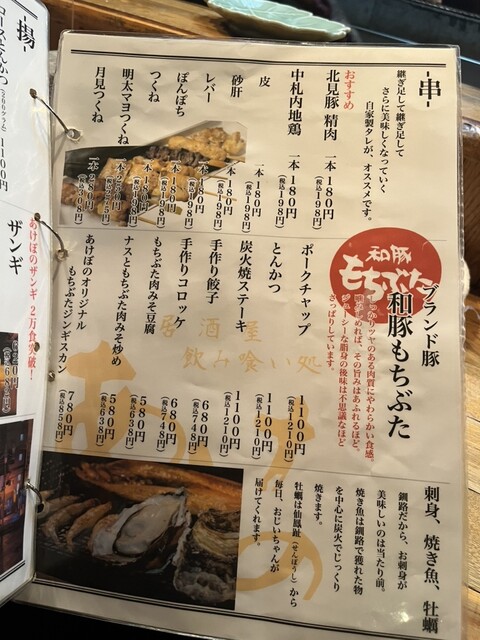 -串-
継ぎ足して継ぎ足して
さらに美味しくなっていく
自家製タレが、オススメです。
おすすめ
北見豚 精肉 一本 180円(税込198円)
中札内地鶏 一本 180円(税込198円)
皮 一本 180円(税込198円)
砂肝 一本 180円(税込198円)
レバー 一本 180円(税込198円)
ぼんぼち 一本 180円(税込198円)
つくね 一本
明太マヨつくね 一本
月見つくね 一本 280円(税込308円)
ブランド豚
和豚もちぶた
和豚
もちぶた
しっかりツヤのある肉質にやわらかい食感。
噛みしめれば、その旨みはあふれるほど。
ジューシーな脂身の後味は不思議なほど
さっぱりしています。
ポークチャップ 1100円(税込1210円)
とんかつ 1100円(税込1210円)
炭火焼ステーキ 1100円(税込1210円)
手作り餃子 680円(税込748円)
手作りコロッケ 680円(税込748円)
もちぶた肉みそ豆腐 580円(税込638円)
ナスともちぶた肉みそ炒め 580円(税込638円)
あけぼのオリジナル
もちぶたジンギスカン 780円(税込858円)
居酒屋
飲み喰い処
刺身、焼き魚、牡蠣
釧路だから、お刺身が
美味しいのは当たり前。
焼き魚は釧路で獲れた物
を中心に炭火でじっくり
焼きます。
牡蠣は仙鳳趾(せんぽうし)から
毎日、おじいちゃんが
届けてくれます。
-揚-
1100円
あけぼのザンギ 2万食突破!
ザンギ